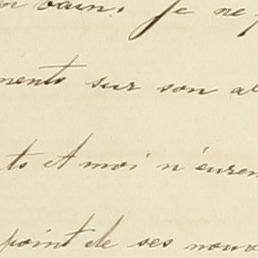 en vain. Je ne p
ments sur son al
ts et moi n'euren
point de ses nouv